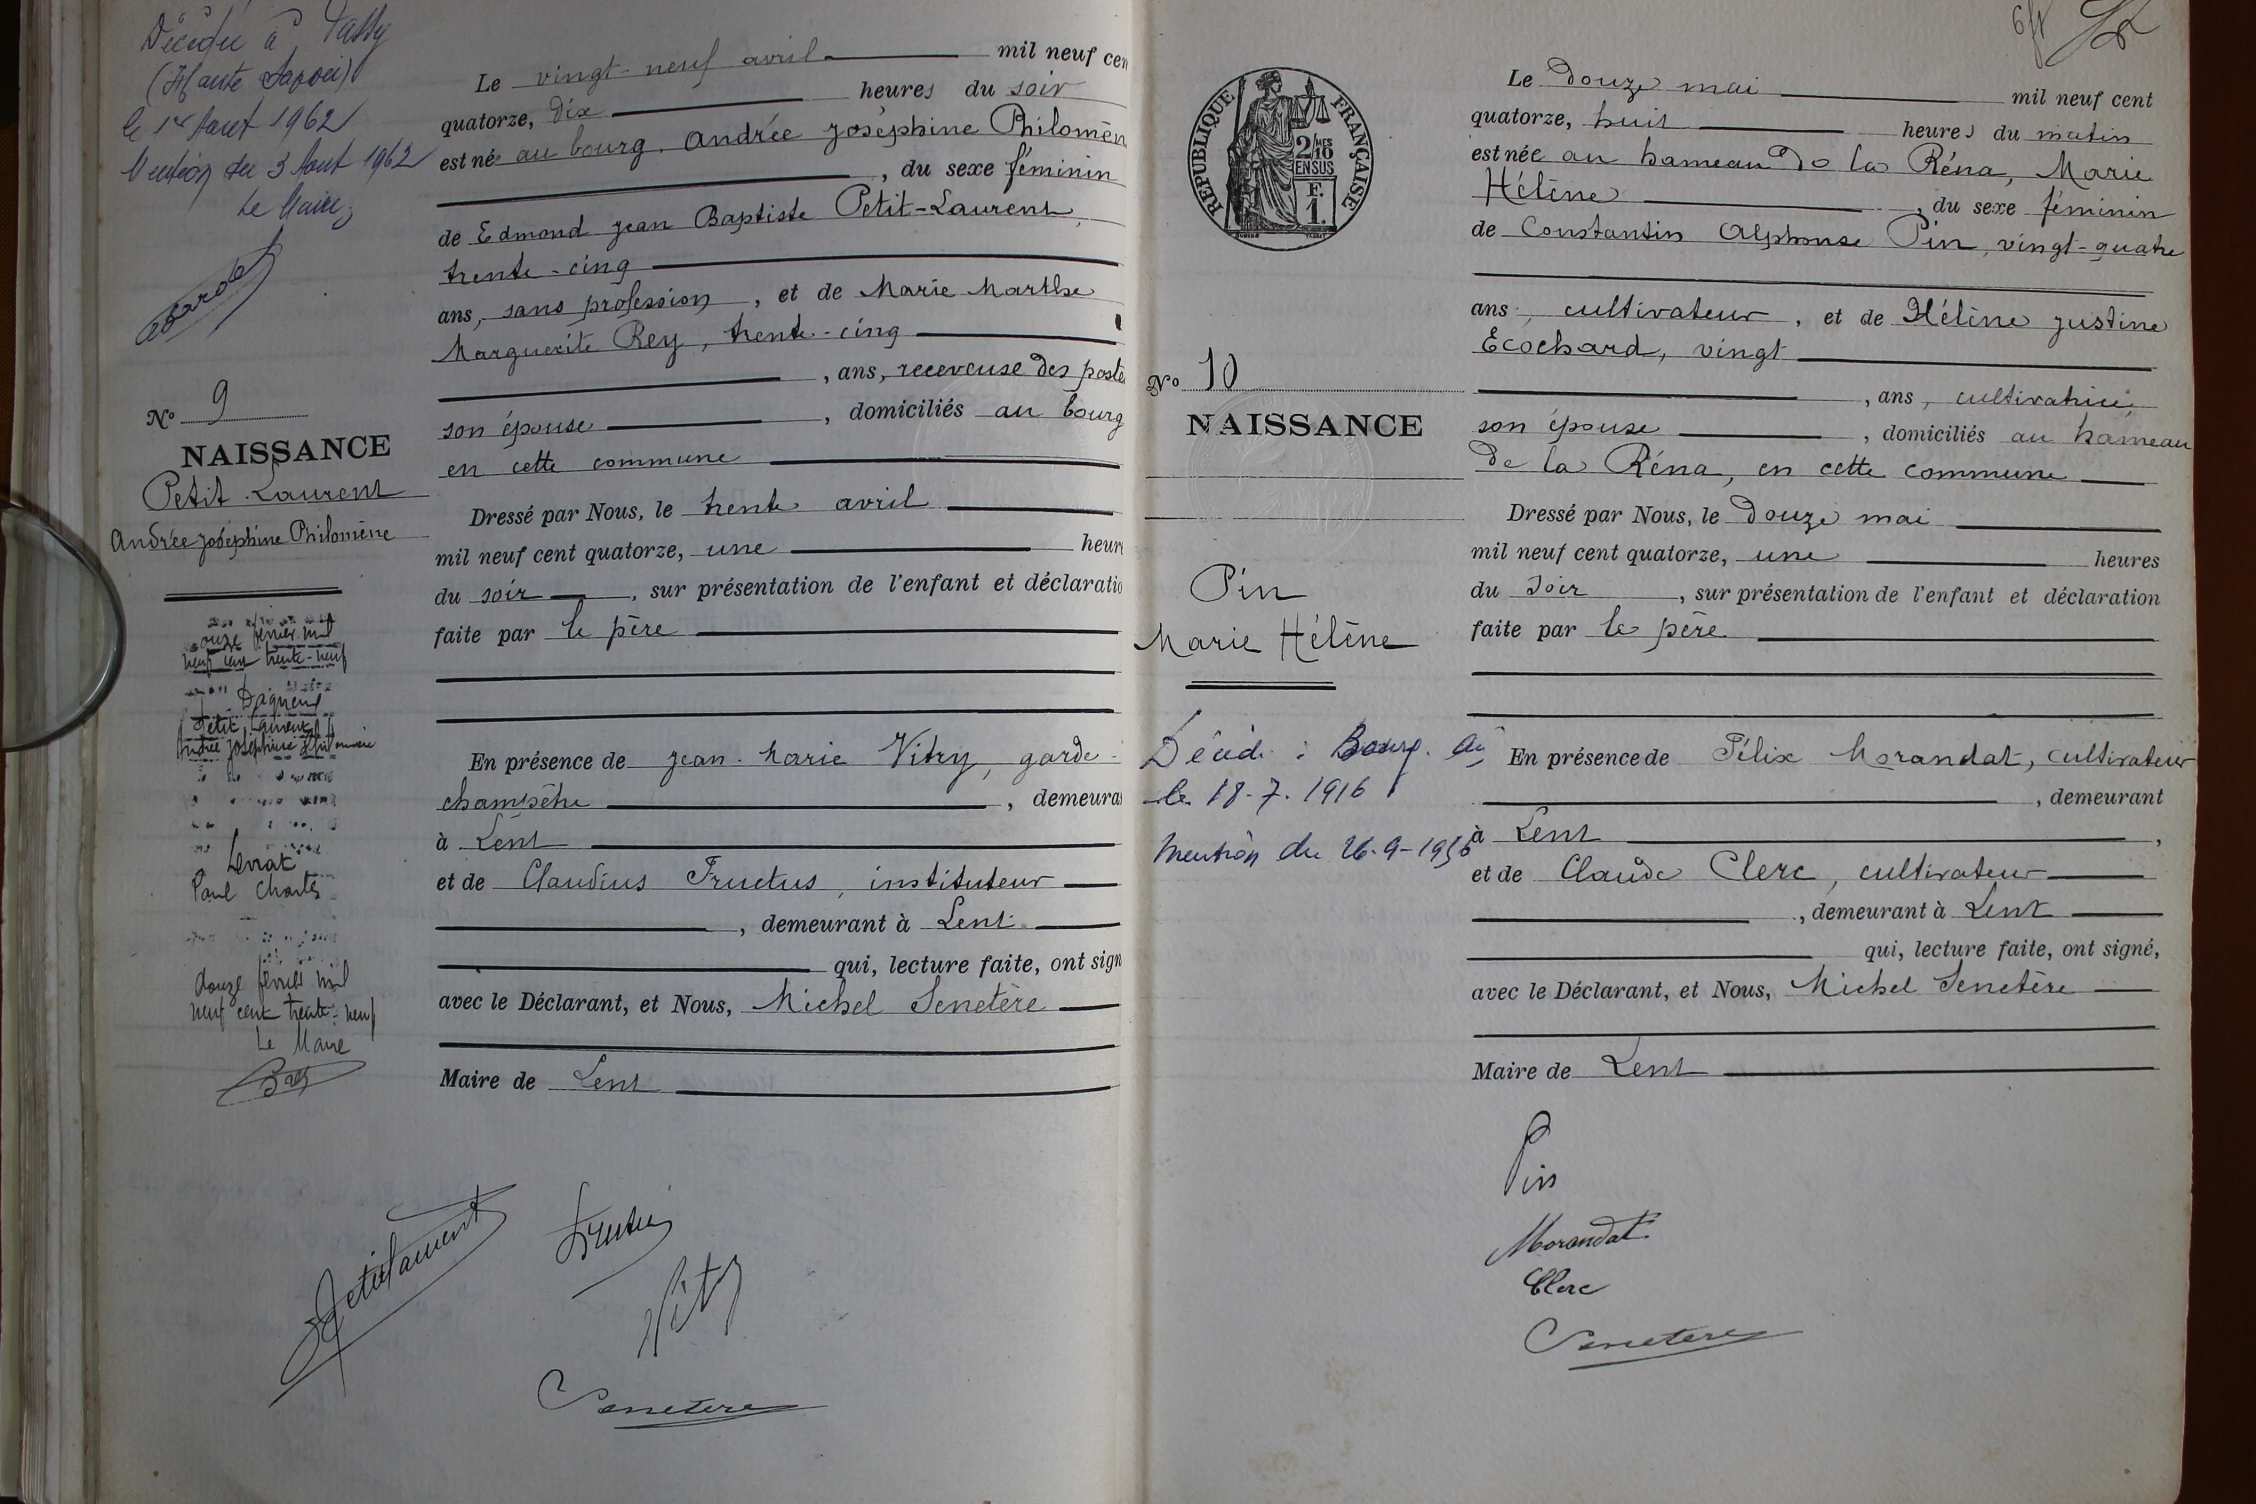 Décédée à Passy
(Haute Savoie)
le 1er Aout 1962
Mention du 3 Aout 1962
Le Maire,
No 9
NAISSANCE
Petit-Laurent
Andrée Joséphine Philomène
douze février mil
neuf cent trente-neuf
Petit Laurent
Andrée Joséphine Philomène
Levrat
Paul Charles
douze février mil
neuf cent trente-neuf
Le Maire
Le vingt-neuf avril mil neuf cen
quatorze, dix heures du soir
est née au bourg, Andrée Joséphine Philomèn
, du sexe féminin
de Edmond Jean Baptiste Petit-Laurent,
trente-cinq
ans, sans profession, et de Marie Marthe
Marguerite Rey, trente-cinq
, ans, receveuse des poste
son épouse, domiciliés au bourg
en cette commune
Dressé par Nous, le trente avril
mil neuf cent quatorze, une heure
du soir, sur présentation de l'enfant et déclaratio
faite par le père
En présence de Jean-Marie Vitry, garde-
champêtre, demeura
à Lent
et de Claudius Fructus, instituteur
, demeurant à Lent
qui, lecture faite, ont sign
avec le Déclarant, et Nous, Michel Senetère
Maire de Lent
Petitlaurent
Vitry
Senetère
64
RÉPUBLIQUE FRANÇAISE
2/10
MES
EN SUS
F.
1.
No 10
NAISSANCE
Pin
Marie Hélène
le 18-7-1916
Le douze mai mil neuf cent
quatorze, huit heures du matin
est née au hameau de la Réna, Marie
Hélène, du sexe féminin
de Constantin Alphonse Pin, vingt-quatre
ans, cultivateur, et de Hélène Justine
Ecochard, vingt
, ans, cultivatrice,
son épouse, domiciliés au hameau
de la Réna, en cette commune
Dressé par Nous, le douze mai
mil neuf cent quatorze, une heures
du soir, sur présentation de l'enfant et déclaration
faite par le père
En présence de Félix Morandat, cultivateur
, demeurant
à Lent,
et de Claude Clerc, cultivateur
, demeurant à Lent
qui, lecture faite, ont signé,
avec le Déclarant, et Nous, Michel Senetère
Maire de Lent
Pin
Morandat
Clerc
Senetère